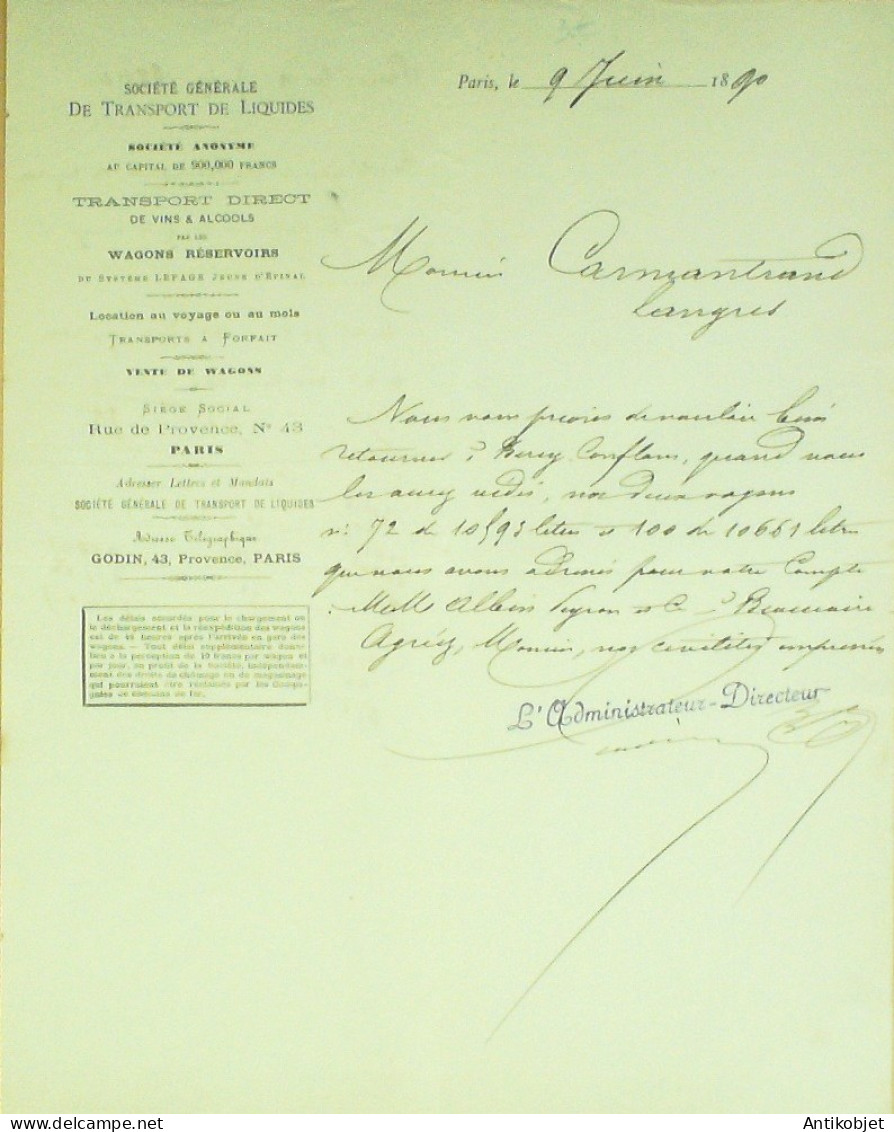 SOCIÉTÉ GÉNÉRALE
DE TRANSPORT DE LIQUIDES
SOCIÉTÉ ANONYME
AU CAPITAL DE 900,000 FRANCS
TRANSPORT DIRECT
DE VINS & ALCOOLS
PAR LES
WAGONS RÉSERVOIRS
DU SYSTÈME LEPAGE JEUNE D'ÉPINAL
Location au voyage ou au mois
TRANSPORTS A FORFAIT
VENTE DE WAGONS
SIÈGE SOCIAL
Rue de Provence, N° 43
PARIS
Adresser Lettres et Mandats
SOCIÉTÉ GÉNÉRALE DE TRANSPORT DE LIQUIDES
Adresse Télégraphique
GODIN, 43, Provence, PARIS
Les délais accordés pour le chargement ou
le déchargement et la réexpédition des wagons
est de 48 heures après l'arrivée en gare des
wagons. — Tout délai supplémentaire donne
lieu à la perception de 10 francs par wagon et
par jour, au profit de la Société, indépendam-
ment des droits de chômage ou de magasinage
qui pourraient être réclamés par les Compa-
gnies de chemins de fer.
Paris, le 9 Juin 1890
Monsieur Carmantrand
Langres
Nous vous prions de vouloir bien
retourner à Bercy Conflans, quand vous
les aurez vidés, nos deux wagons
n° 72 de 10593 litres & 100 de 10661 litres
que nous avons adressés pour votre Compte
à MM Albin Peyron & Cie à Beaucaire
Agréez, Monsieur, nos civilités empressées
L'Administrateur-Directeur
Antikobjet